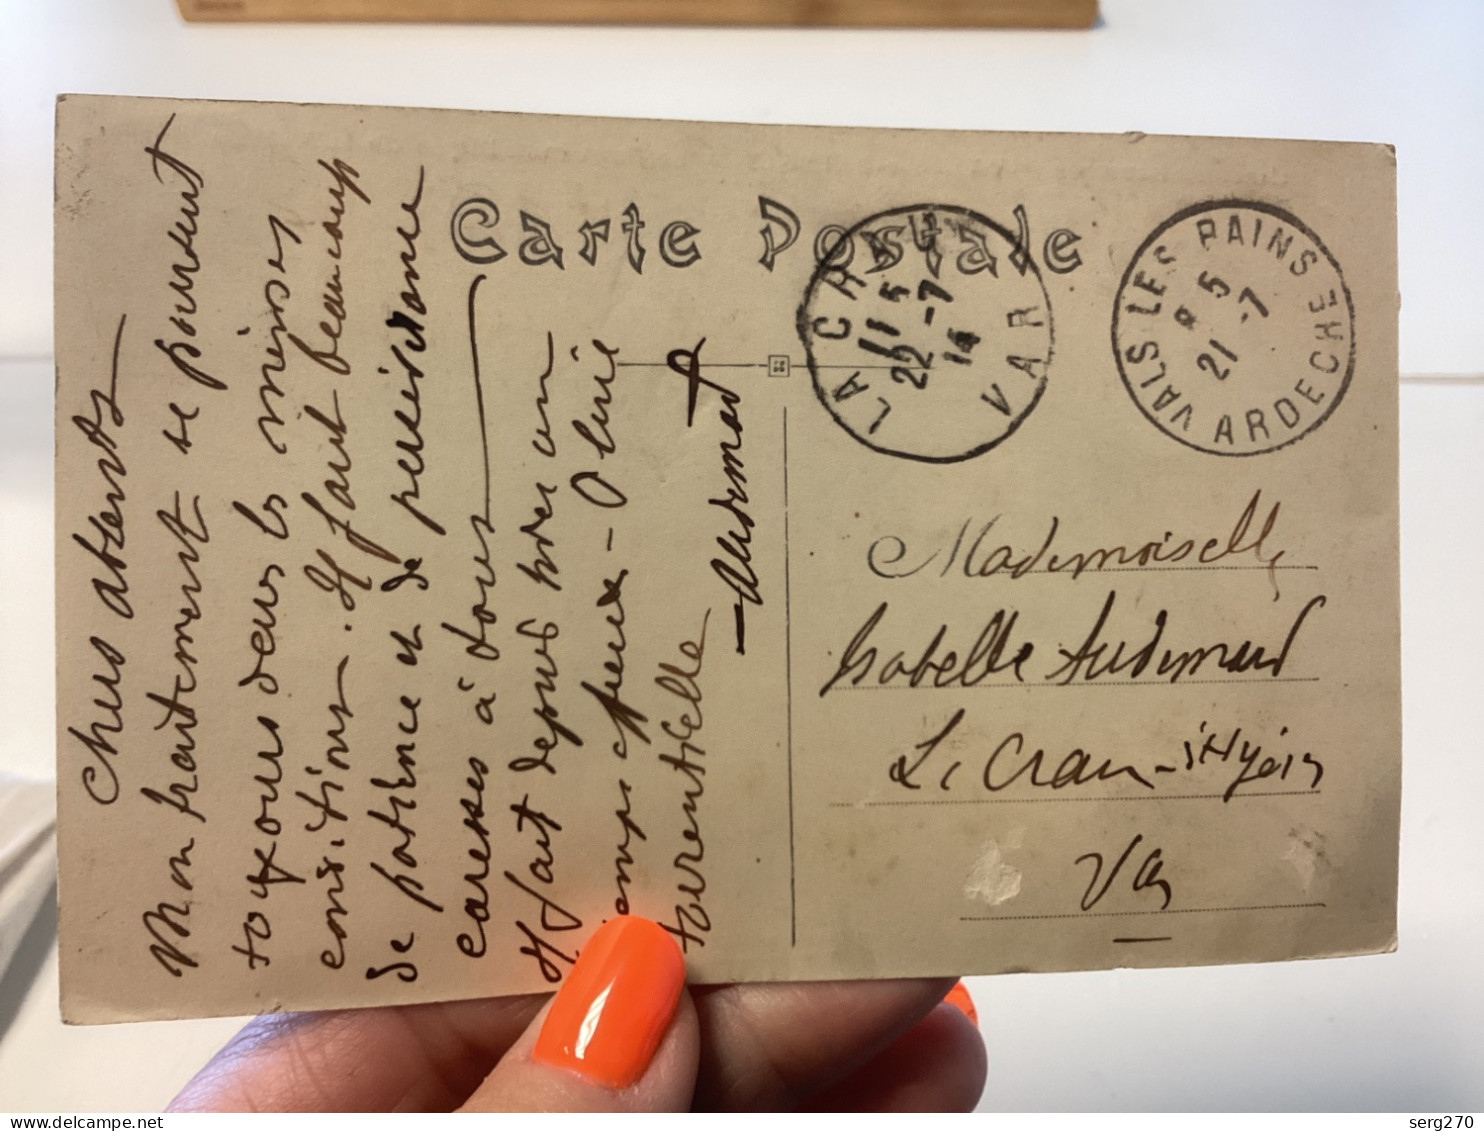 Carte Postale
LA CRAU
11 5
22 - 7
14
VAR
VALS LES PAINS
8 5
21 - 7
ARDECHE
Chers absents
Mon traitement se poursuit
toujours dans les mêmes
conditions. Il faut beaucoup
de patience et de persévérance
caresses à tous
Il fait depuis hier un
temps affreux - Pluie
torrentielle
Audemard
Mademoiselle
Isabelle Audemard
La Crau - d'Hyères
Var
delcampe.net
serg270